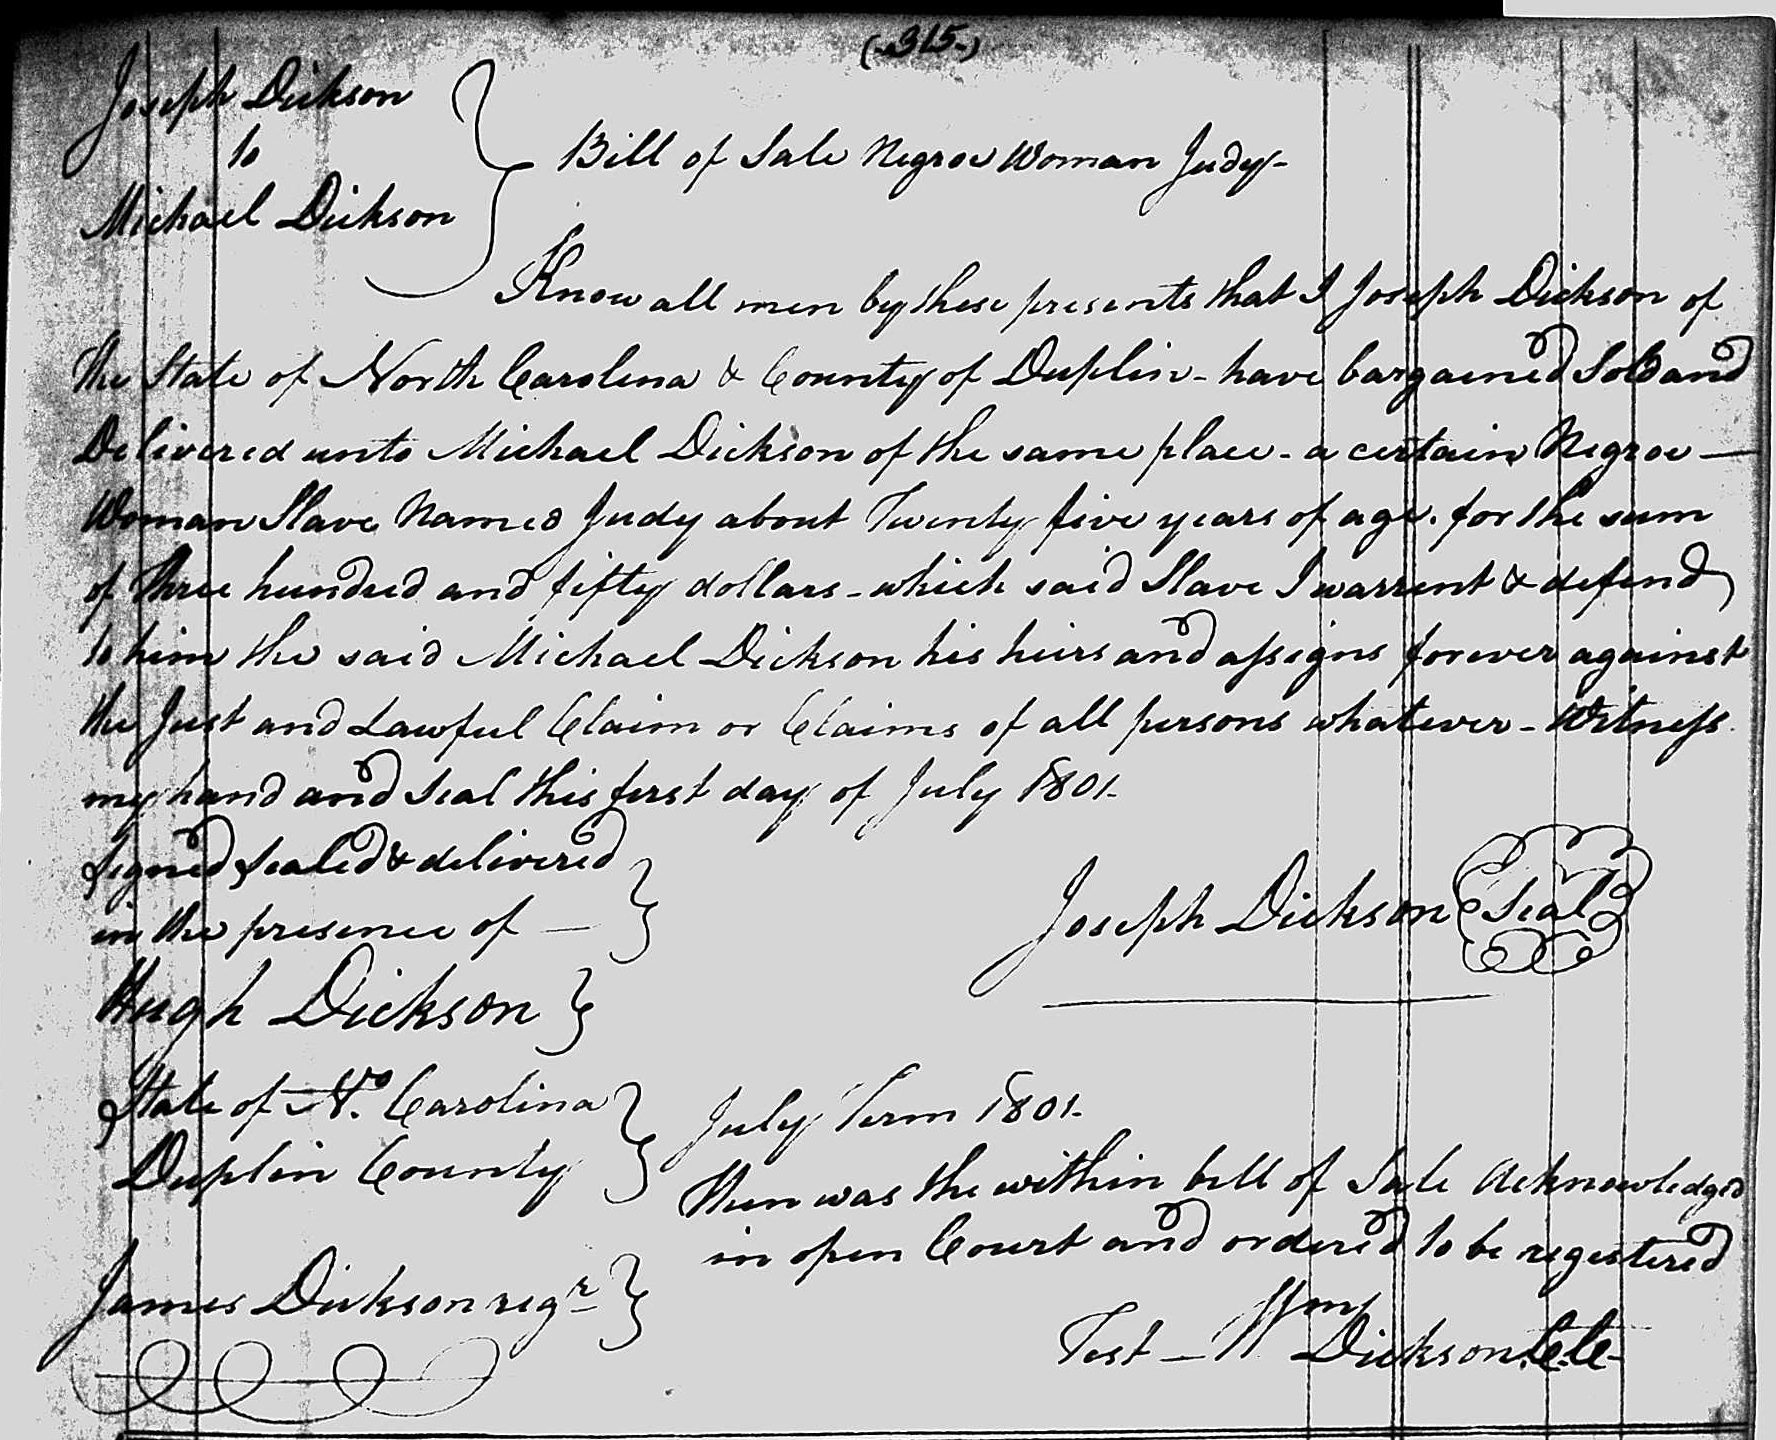 (-315-)
Joseph Dickson
to
Michael Dickson
Bill of Sale Negroe Woman Judy-
Know all men by these presents that I Joseph Dickson of
the State of North Carolina & County of Duplin - have bargained Sold and
Delivered unto Michael Dickson of the same place - a certain Negroe —
Woman Slave Named Judy about Twenty five years of age. for the sum
of three hundred and fifty dollars - which said Slave I warrent & defend
to him the said Michael Dickson his heirs and assigns forever against
the Just and Lawful Claim or Claims of all persons whatever - Witness
my hand and Seal this first day of July 1801-
Signed Sealed & delivered
in the presence of —
Joseph Dickson Seal
Hugh Dickson
State of No. Carolina
Duplin County
July Term 1801-
then was the within bill of Sale Acknowledged
in open Court and ordered to be registered
James Dickson regr
Test — Wm Dickson C.C.